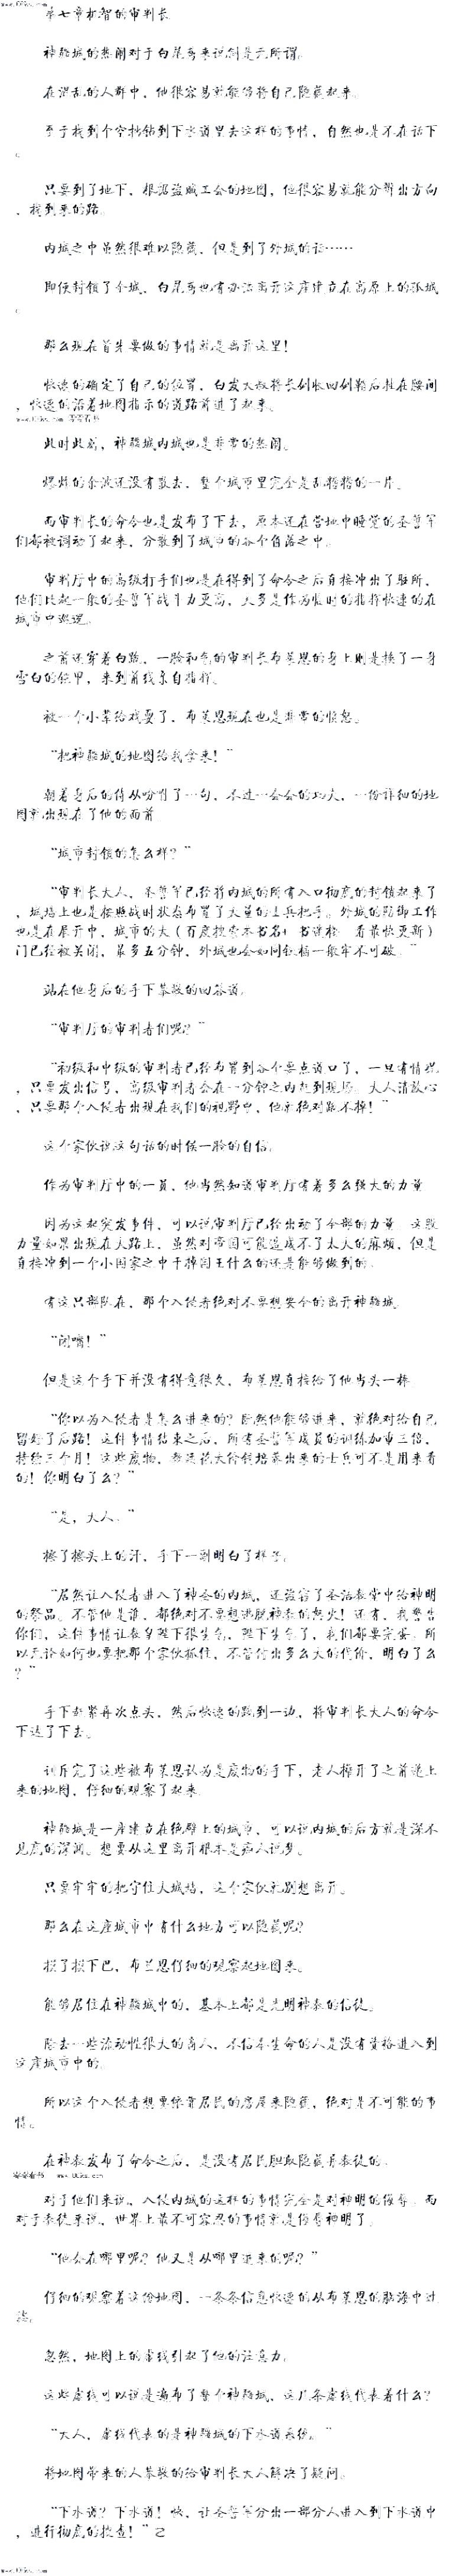 第七章机智的审判长
神骸城的热闹对于白尾哥来说倒是无所谓。
在混乱的人群中，他很容易就能够将自己隐藏起来。
至于找到个空挡钻到下水道里去这样的事情，自然也是不在话下
。
只要到了地下，根据盗贼工会的地图，他很容易就能分辨出方向
，找到来的路。
内城之中虽然很难以隐藏，但是到了外城的话……
即使封锁了个城，白尾哥也有办法离开这座建立在高原上的孤城
。
那么现在首先要做的事情就是离开这里！
快速的确定了自己的位置，白发大叔将长剑收回剑鞘后挂在腰间
，快速的沿着地图指示的道路前进了起来。
此时此刻，神骸城内城也是非常的热闹。
爆炸的余波还没有散去，整个城市里完全是乱糟糟的一片。
而审判长的命令也是发布了下去，原本还在营地中睡觉的圣誓军
们都被调动了起来，分散到了城市的各个角落之中。
审判厅中的高级打手们也是在得到了命令之后直接冲出了驻所，
他们比起一般的圣誓军战斗力更高，大多是作为临时的指挥快速的在
城市中巡逻。
之前还穿着白袍，一脸和气的审判长布莱恩的身上则是换了一身
雪白的铠甲，来到前线亲自指挥。
被一个小辈给戏耍了，布莱恩现在也是非常的愤怒。
“把神骸城的地图给我拿来！”
朝着身后的侍从吩咐了一句，不过一会会的功夫，一份详细的地
图就出现在了他的面前
“城市封锁的怎么样？”
“审判长大人，圣誓军已经将内城的所有入口彻底的封锁起来了
，城墙上也是按照战时状态布置了大量的士兵把手。外城的防御工作
也是在展开中，城市的大（百度搜索本书名+书迷楼 看最快更新）
门已经被关闭，最多五分钟，外城也会如同铁桶一般牢不可破。”
站在他身后的手下恭敬的回答道。
“审判厅的审判者们呢？”
“初级和中级的审判者已经布置到各个要点道口了，一旦有情况
，只要发出信号，高级审判者会在一分钟之内赶到现场。大人请放心
，只要那个入侵者出现在我们的视野中，他就绝对跑不掉！”
这个家伙说这句话的时候一脸的自信。
作为审判厅中的一员，他当然知道审判厅有着多么强大的力量
因为这起突发事件，可以说审判厅已经出动了全部的力量 这股
力量如果出现在大陆上，虽然对帝国可能造成不了太大的麻烦，但是
直接冲到一个小国家之中干掉国王什么的还是能够做到的。
有这只部队在，那个入侵者绝对不要想安全的离开神骸城
“闭嘴！”
但是这个手下并没有得意很久，布莱恩直接给了他当头一棒
“你以为入侵者是怎么进来的？既然他能够进来，就绝对给自己
留好了后路！这件事情结束之后，所有圣誓军成员的训练加重三倍，
持续三个月！这些废物，教廷花大价钱培养出来的士兵可不是用来看
的！你明白了么？”
“是，大人。”
擦了擦头上的汗，手下一副明白了样子。
“居然让入侵者进入了神圣的内城，还毁害了圣洁教堂中给神明
的祭品。不管他是谁，都绝对不要想逃脱神教的怒火！还有，我警告
你们，这件事情让教皇陛下很生气，陛下生气了，我们都要完蛋。所
以无论如何也要把那个家伙抓住，不管付出多么大的代价，明白了么
？”
手下赶紧再次点头，然后快速的跑到一边，将审判长大人的命令
下达了下去。
训斥完了这些被布莱恩认为是废物的手下，老人摊开了之前递上
来的地图，仔细的观察了起来
神骸城是一座建立在绝壁上的城市，可以说内城的后方就是深不
见底的深渊。想要从这里离开根本是痴人说梦。
只要牢牢的把守住大城墙，这个家伙就别想离开。
那么在这座城市中有什么地方可以隐藏呢？
摸了摸下巴，布兰恩仔细的观察起地图来。
能够居住在神骸城中的，基本上都是光明神教的信徒。
除去一些流动性很大的商人，不信奉生命的人是没有资格进入到
这座城市中的
所以这个入侵者想要依靠居民的房屋来隐藏，绝对是不可能的事
情。
在神教发布了命令之后，是没有居民胆敢隐藏异教徒的。
对于他们来说，入侵内城的这样的事情完全是对神明的侮辱。而
对于教徒来说，世界上最不可容忍的事情就是侮辱神明了
“他会在哪里呢？他又是从哪里进来的呢？”
仔细的观察着这份地图，一条条信息快速的从布莱恩的脑海中过
滤。
忽然，地图上的虚线引起了他的注意力。
这些虚线可以说是遍布了整个神骸城，这几条虚线代表着什么？
“大人，虚线代表的是神骸城的下水道系统。”
将地图带来的人恭敬的给审判长大人解决了疑问。
“下水道？下水道！快，让圣誓军分出一部分人进入到下水道中
，进行彻底的搜查！”己